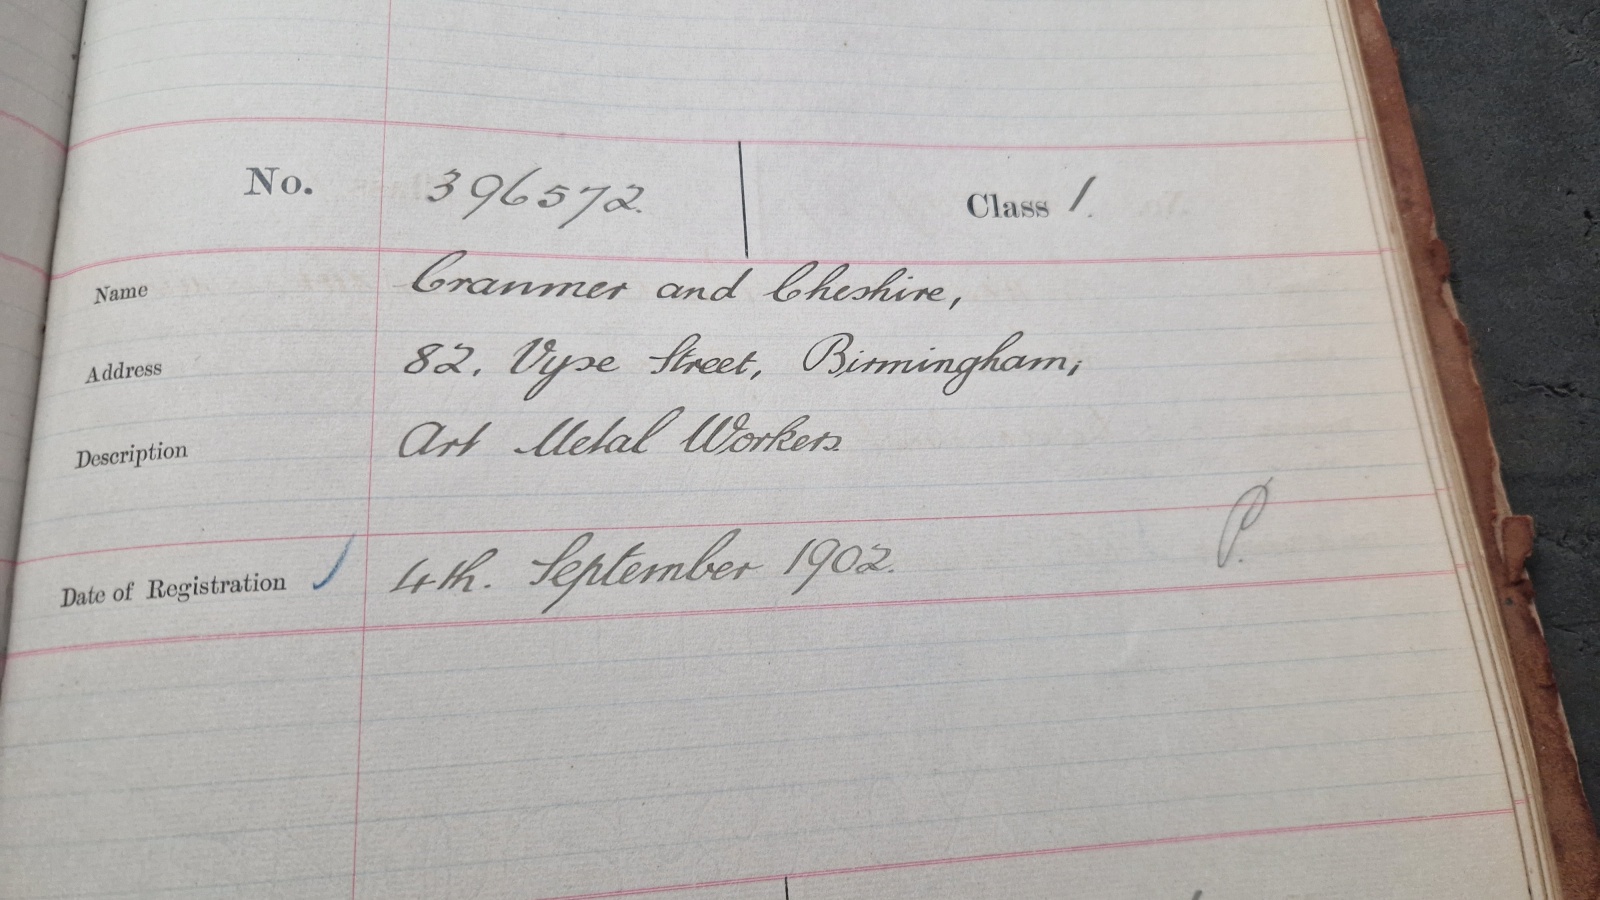 No. 396572. Class 1.
Name Cranmer and Cheshire,
Address 82, Vyse Street, Birmingham;
Description Art Metal Workers.
P.
Date of Registration 4th. September 1902.